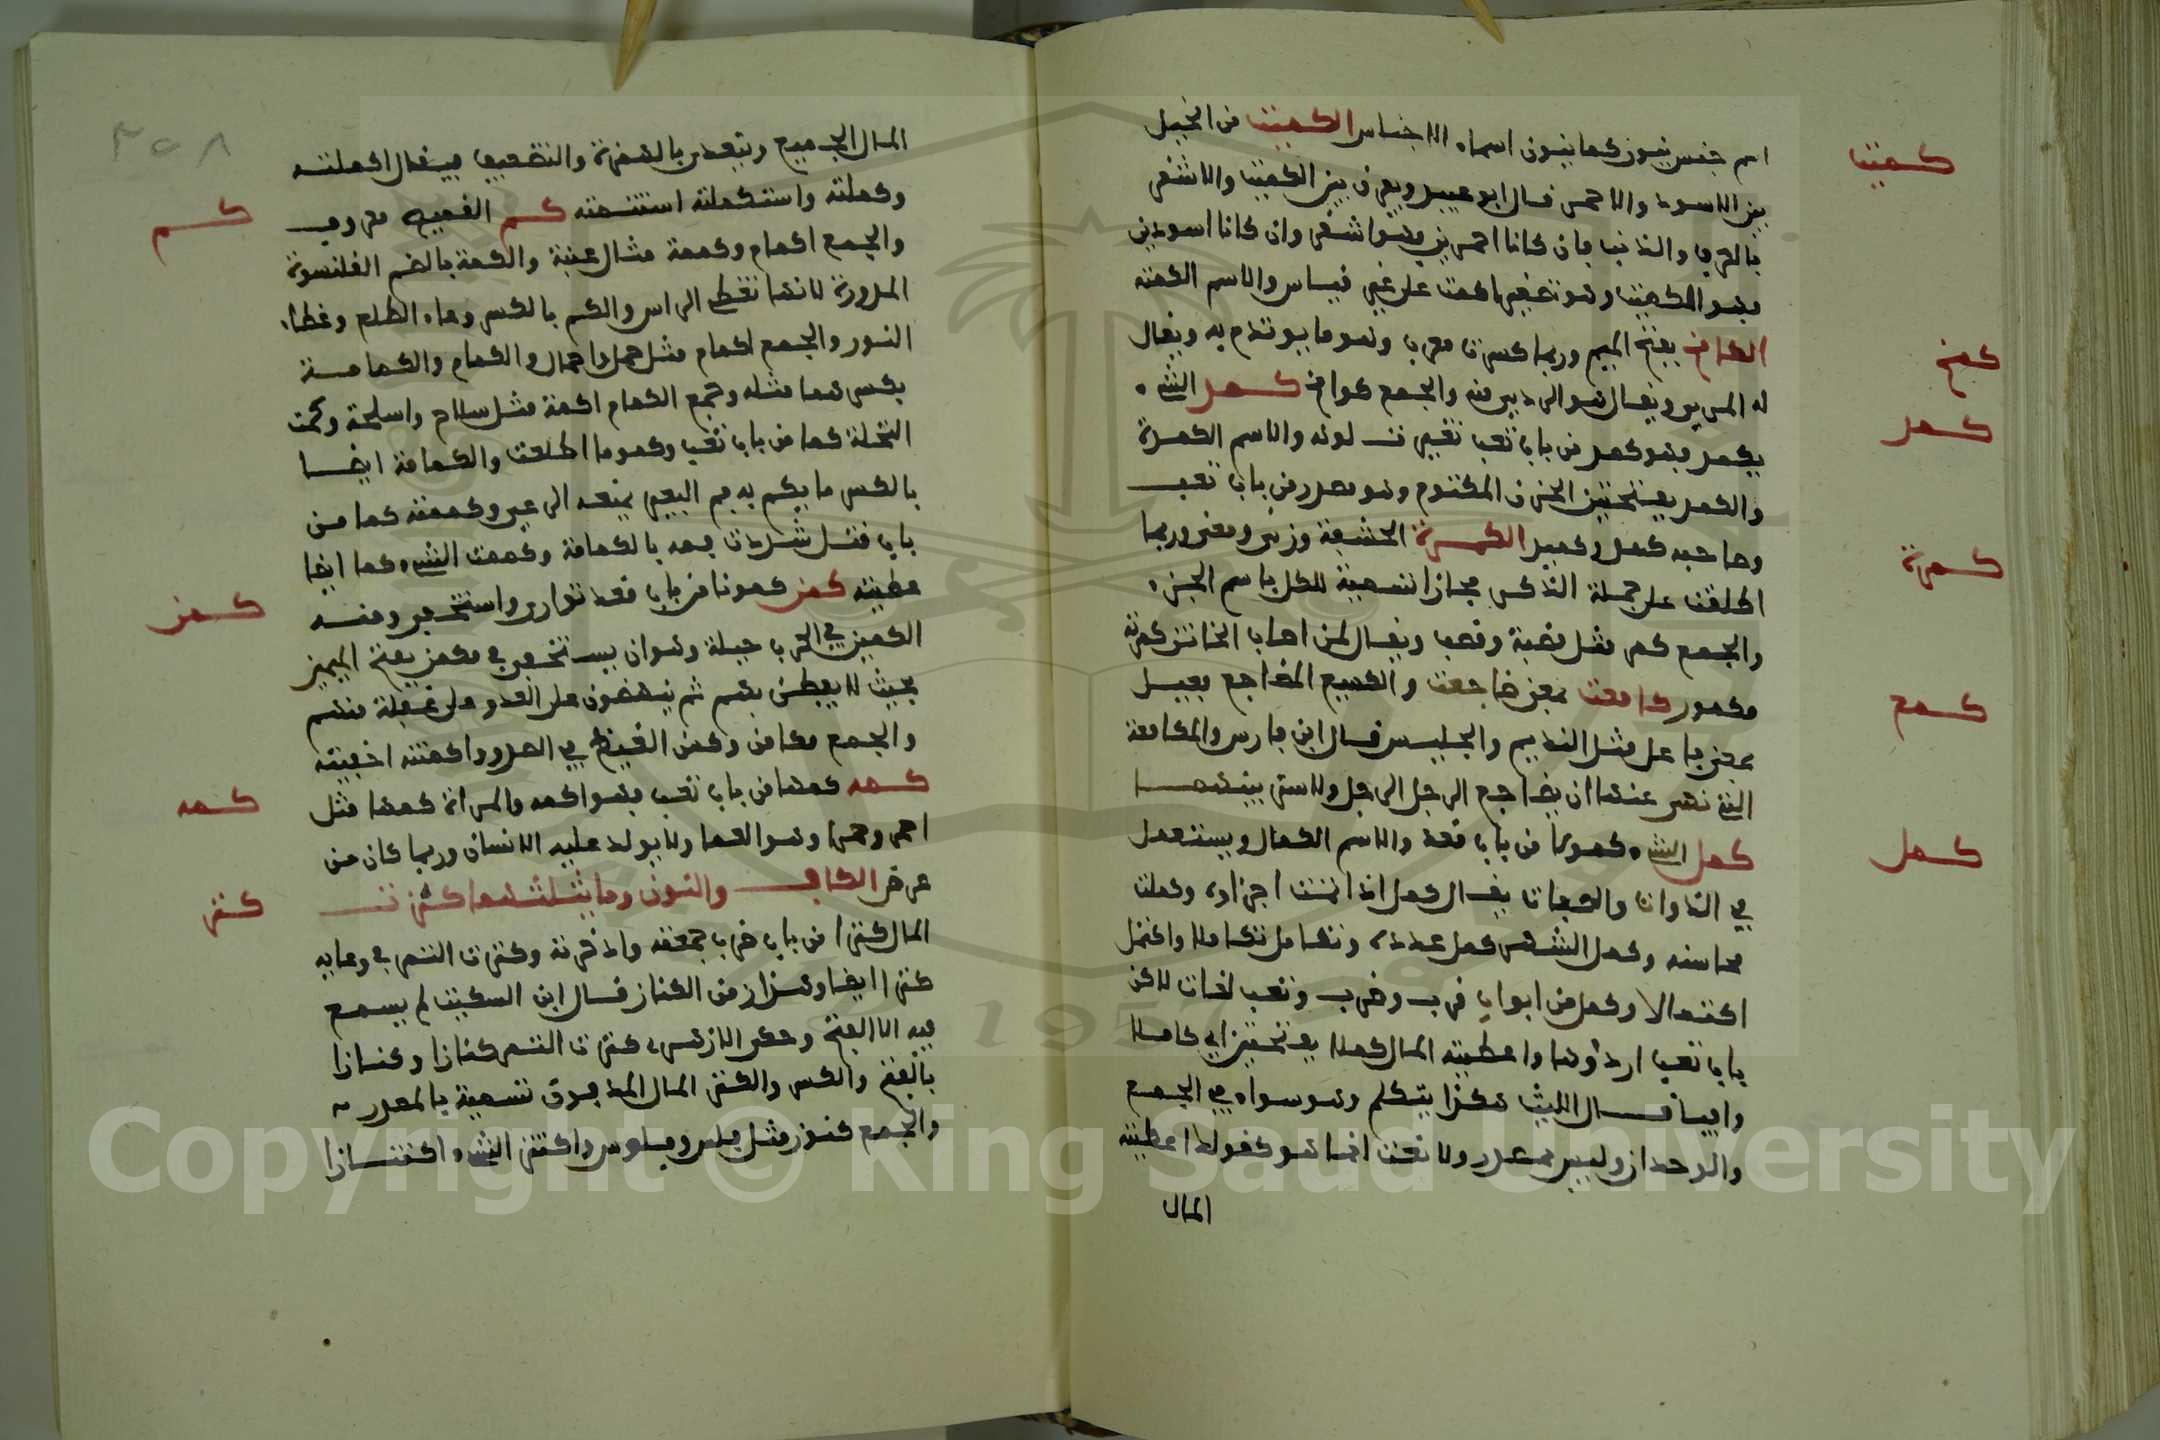 اسم جنس ينون كما ينون اسماء الاجناس الكميت من الخيل
كميت
بين الاسود والاحمر قال ابو عبيد ويفرق بين الكميت والاشقر
بالعرف والذنب فان كانا احمرين فهو اشقر وان كانا اسودين
فهو الكميت وهو تصغير اكمت على غير قياس والاسم الكمتة
الكامخ بفتح الميم وربما كسرت معرب وهو ما يوتدم به ويقال
كمخ
له المري ويقال هو الردي منه والجمع كوامخ كمد الشيء
كمد
يكمد فهو كمد من باب تعب تغير لونه والاسم الكمدة
والكمد بفتحتين الحزن المكتوم وهو مصدر من باب تعب
وصاحبه كمد وكميد الكمرة الحشفة وزنى ومعنى وربما
كمرة
اطلقت على جملة الذكر مجازا تسمية للكل باسم الجزء
والجمع كمر مثل قصبة وقصب ويقال لمن اصاب الخاتن كمرته
مكمور كامعت بمعنى ضاجعت والكميع المضاجع فعيل
كمع
بمعنى فاعل مثل النديم والجليس قال ابن فارس والمكامعة
التي نهي عنها ان يضاجع الرجل الرجل ولا ستر بينهما
كمل الشيء كمولا من باب قعد والاسم الكمال ويستعمل
كمل
في الذوات والصفات يقال كمل اذا تمت اجزاؤه وكملت
محاسنه وكمل الشهر كمل عدده وتكامل تكاملا واكتمل
اكتمالا وكمل من ابواب قرب وضرب وتعب لغات لاكن
باب تعب اردؤها واعطيته المال كملا بفتحتين اي كاملا
وافيا قال الليث هكذا يتكلم وهو سواء في الجمع
والوحدان وليس بمصدر ولا نعت انما هو كقولك اعطيته
المال
٣٥٨
المال الجميع ويتعدى بالهمزة والتضعيف فيقال اكملته
وكملته واستكملته استتممته كم القميص معروف
كم
والجمع اكمام وكممة مثال عنبة والكمة بالضم القلنسوة
المدورة لانها تغطي الراس والكم بالكسر وعاء الطلع وغطاء
النور والجمع اكمام مثل حمل واحمال والكمام والكمامة
بكسرهما مثله وجمع الكمام اكمة مثل سلاح واسلحة وكمت
النخلة كما من باب تعب وكموما اطلعت والكمامة ايضا
بالكسر ما يكم به فم البعير يمنعه الرعي وكممته كما من
باب قتل شددت فمه بالكمامة وكممت الشيء كما ايضا
غطيته كمن كمونا من باب قعد توارى واستخفى ومنه
كمن
الكمين في الحرب حيلة وهو ان يستخفي في مكمن بفتح الميمين
بحيث لا يفطن بهم ثم ينهضون على العدو على غفلة منهم
والجمع مكامن وكمن الغيظ في الصدر واكمنته اخفيته
كمه كمها من باب تعب فهو اكمه والمراة كمها مثل
كمه
احمر وحمرا وهو العما ولا يولد عليه الانسان وربما كان من
مرض الكاف والنون وما يثلثهما كنزت
كنز
المال كنزا من باب ضرب جمعته واذخرته وكنزت التمر في وعايه
كنزا ايضا وهذا زمن الكناز قال ابن السكيت لم يسمع
فيه الا الفتح وحكى الازهري كنزت التمر كنازا وكنازا
بالفتح والكسر والكنز المال المدفون تسمية بالمصدر
والجمع كنوز مثل فلس وفلوس واكتنز الشيء اكتنازا
Copyright © King Saud University
1957